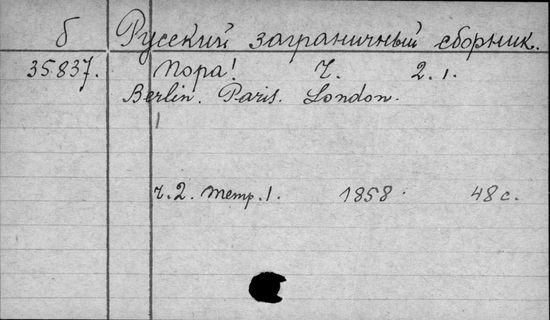 б Русский заграничный сборник.
35.837. Пора! Ч. 2. 1.
Berlin. Paris. London.
ч. 2. тетр. 1. 1858. 48 с.